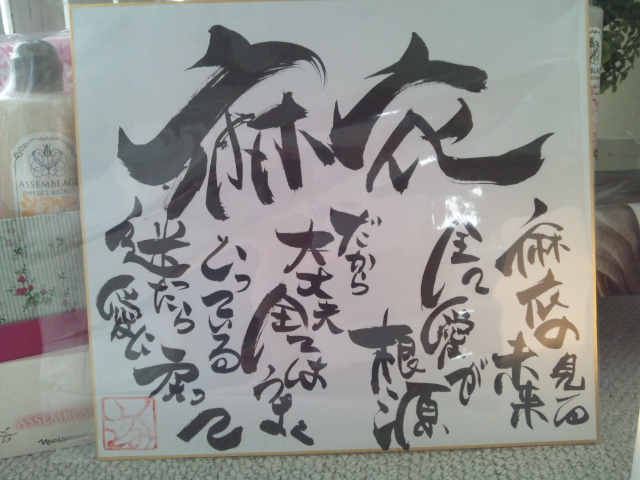 麻衣
麻衣の見る
未来
全て愛が
根源
だから
大丈夫
全てはうまく
いっている
迷ったら
愛に戻って
ASSEMBLAGE